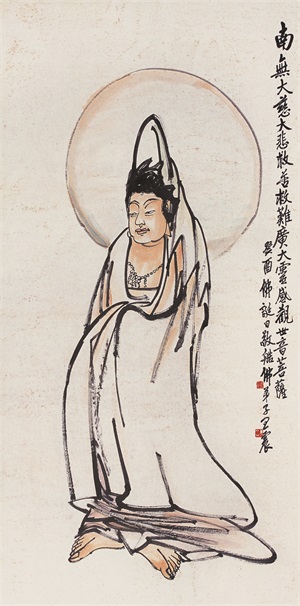 南無大慈大悲救苦救難廣大靈感觀世音菩薩
癸酉佛誕日敬繪佛弟子王震